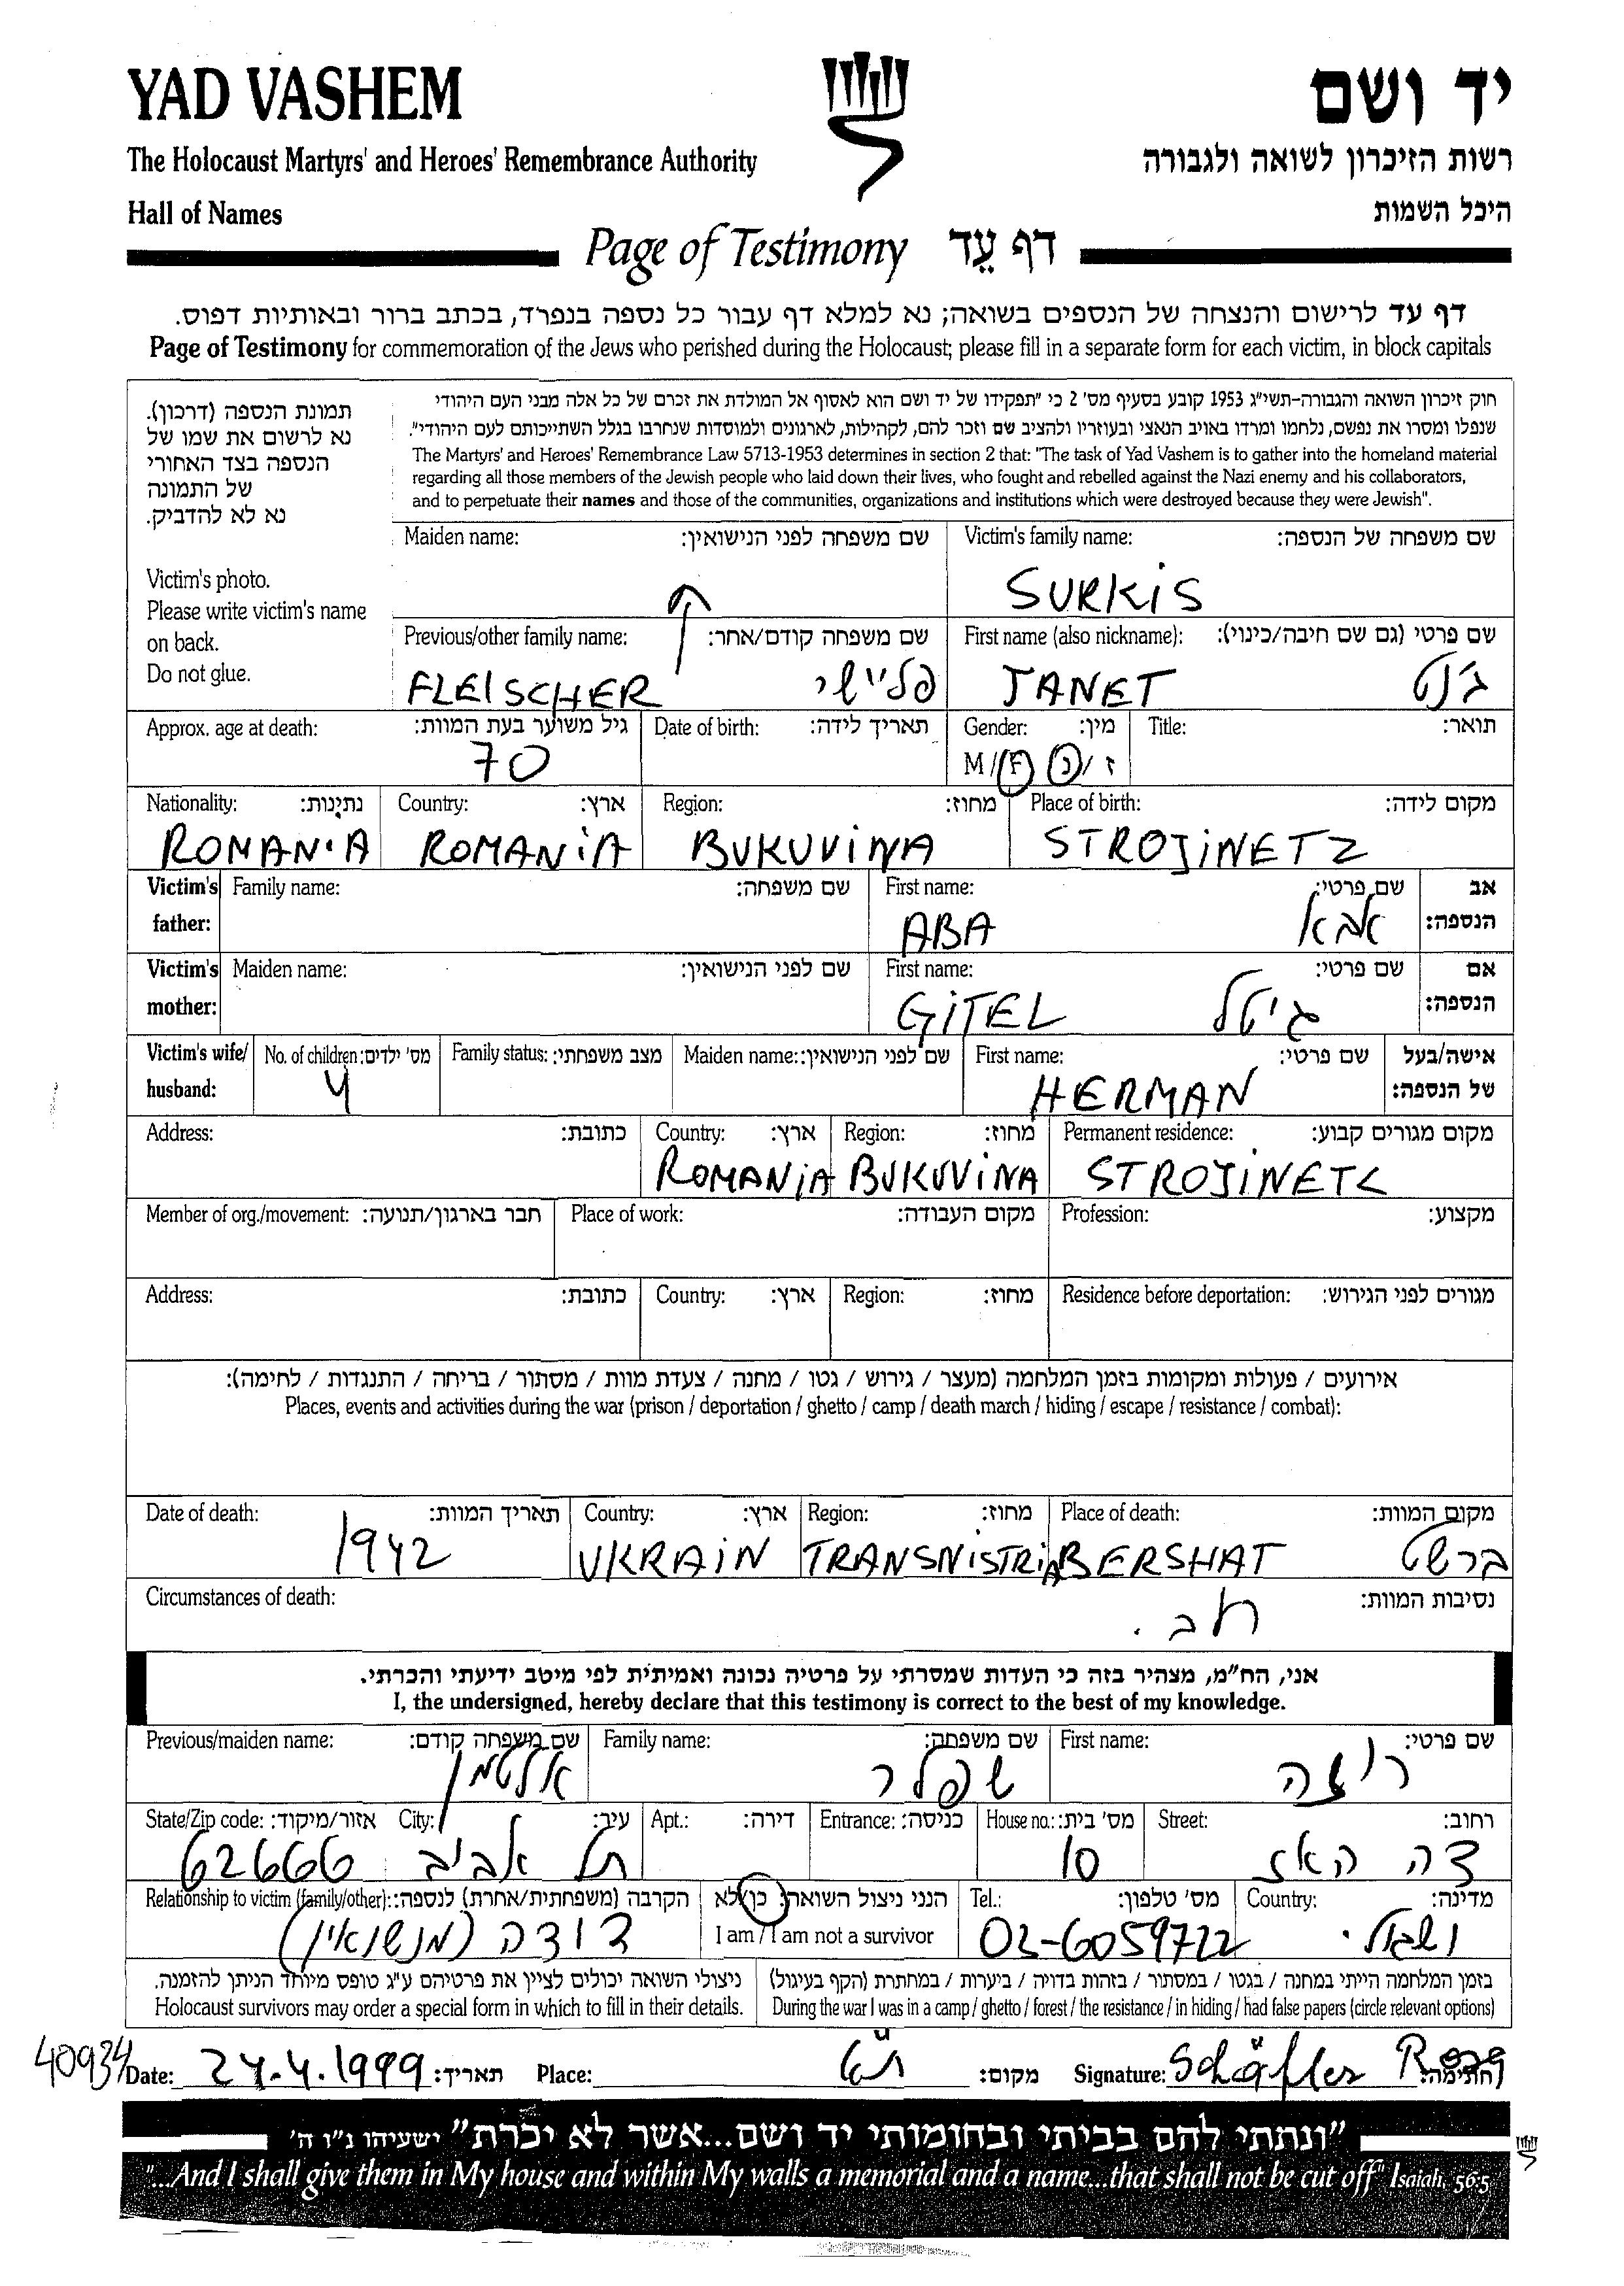 YAD VASHEM
יד ושם
The Holocaust Martyrs' and Heroes' Remembrance Authority
רשות הזיכרון לשואה ולגבורה
Hall of Names
היכל השמות
Page of Testimony דף עֵד
דף עד לרישום והנצחה של הנספים בשואה; נא למלא דף עבור כל נספה בנפרד, בכתב ברור ובאותיות דפוס.
Page of Testimony for commemoration of the Jews who perished during the Holocaust; please fill in a separate form for each victim, in block capitals
תמונת הנספה (דרכון).
נא לרשום את שמו של
הנספה בצד האחורי
של התמונה
נא לא להדביק.
Victim's photo.
Please write victim's name
on back.
Do not glue.
חוק זיכרון השואה והגבורה-תשי"ג 1953 קובע בסעיף מס' 2 כי "תפקידו של יד ושם הוא לאסוף אל המולדת את זכרם של כל אלה מבני העם היהודי
שנפלו ומסרו את נפשם, נלחמו ומרדו באויב הנאצי ובעוזריו ולהציב שם וזכר להם, לקהילות, לארגונים ולמוסדות שנחרבו בגלל השתייכותם לעם היהודי".
The Martyrs' and Heroes' Remembrance Law 5713-1953 determines in section 2 that: "The task of Yad Vashem is to gather into the homeland material
regarding all those members of the Jewish people who laid down their lives, who fought and rebelled against the Nazi enemy and his collaborators,
and to perpetuate their names and those of the communities, organizations and institutions which were destroyed because they were Jewish".
Maiden name: שם משפחה לפני הנישואין:
Victim's family name: שם משפחה של הנספה:
SURKIS
Previous/other family name: שם משפחה קודם/אחר:
FLEISCHER פליישר
First name (also nickname): שם פרטי (גם שם חיבה/כינוי):
JANET ג'נט
Approx. age at death: גיל משוער בעת המוות:
70
Date of birth: תאריך לידה:
Gender: מין:
M/F ז/נ
Title: תואר:
Nationality: נתינות:
ROMANIA
Country: ארץ:
ROMANIA
Region: מחוז:
BUKUVINA
Place of birth: מקום לידה:
STROJINETZ
Victim's father:
Family name: שם משפחה:
First name: שם פרטי:
ABA אבא
אב הנספה:
Victim's mother:
Maiden name: שם לפני הנישואין:
First name: שם פרטי:
GITEL גיטל
אם הנספה:
Victim's wife/ husband:
No. of children: מס' ילדים:
4
Family status: מצב משפחתי:
Maiden name: שם לפני הנישואין:
First name: שם פרטי:
HERMAN
אישה/בעל של הנספה:
Address: כתובת:
Country: ארץ:
ROMANIA
Region: מחוז:
BUKUVINA
Permanent residence: מקום מגורים קבוע:
STROJINETZ
Member of org./movement: חבר בארגון/תנועה:
Place of work: מקום העבודה:
Profession: מקצוע:
Address: כתובת:
Country: ארץ:
Region: מחוז:
Residence before deportation: מגורים לפני הגירוש:
אירועים / פעולות ומקומות בזמן המלחמה (מעצר / גירוש / גטו / מחנה / צעדת מוות / מסתור / בריחה / התנגדות / לחימה):
Places, events and activities during the war (prison / deportation / ghetto / camp / death march / hiding / escape / resistance / combat):
Date of death: תאריך המוות:
1942
Country: ארץ:
UKRAIN
Region: מחוז:
TRANSNISTRIA
Place of death: מקום המוות:
BERSHAT ברשט
Circumstances of death: נסיבות המוות:
אני, הח"מ, מצהיר בזה כי העדות שמסרתי על פרטיה נכונה ואמיתית לפי מיטב ידיעתי והכרתי.
I, the undersigned, hereby declare that this testimony is correct to the best of my knowledge.
Previous/maiden name: שם משפחה קודם:
אלטמן
Family name: שם משפחה:
שפלר
First name: שם פרטי:
רוזה
State/Zip code: אזור/מיקוד:
62666
City: עיר:
תל אביב
Apt.: דירה:
Entrance: כניסה:
House no.: מס' בית:
10
Street: רחוב:
Relationship to victim (family/other): הקרבה (משפחתית/אחרת) לנספה:
דודה (מנשואין)
הנני ניצול השואה: כן/לא
I am / I am not a survivor
Tel.: מס' טלפון:
02-6059722
Country: מדינה:
ישראל
ניצולי השואה יכולים לציין את פרטיהם ע"ג טופס מיוחד הניתן להזמנה.
Holocaust survivors may order a special form in which to fill in their details.
בזמן המלחמה הייתי במחנה / בגטו / במסתור / בזהות בדויה / ביערות / במחתרת (הקף בעיגול)
During the war I was in a camp / ghetto / forest / the resistance / in hiding / had false papers (circle relevant options)
40934
Date: 24.4.1999 תאריך:
Place: ת"א מקום:
Signature: Schäfler Roza חתימה:
"ונתתי להם בביתי ובחומותי יד ושם...אשר לא יכרת" ישעיהו נ"ו ה'
"...And I shall give them in My house and within My walls a memorial and a name...that shall not be cut off" Isaiah, 56:5